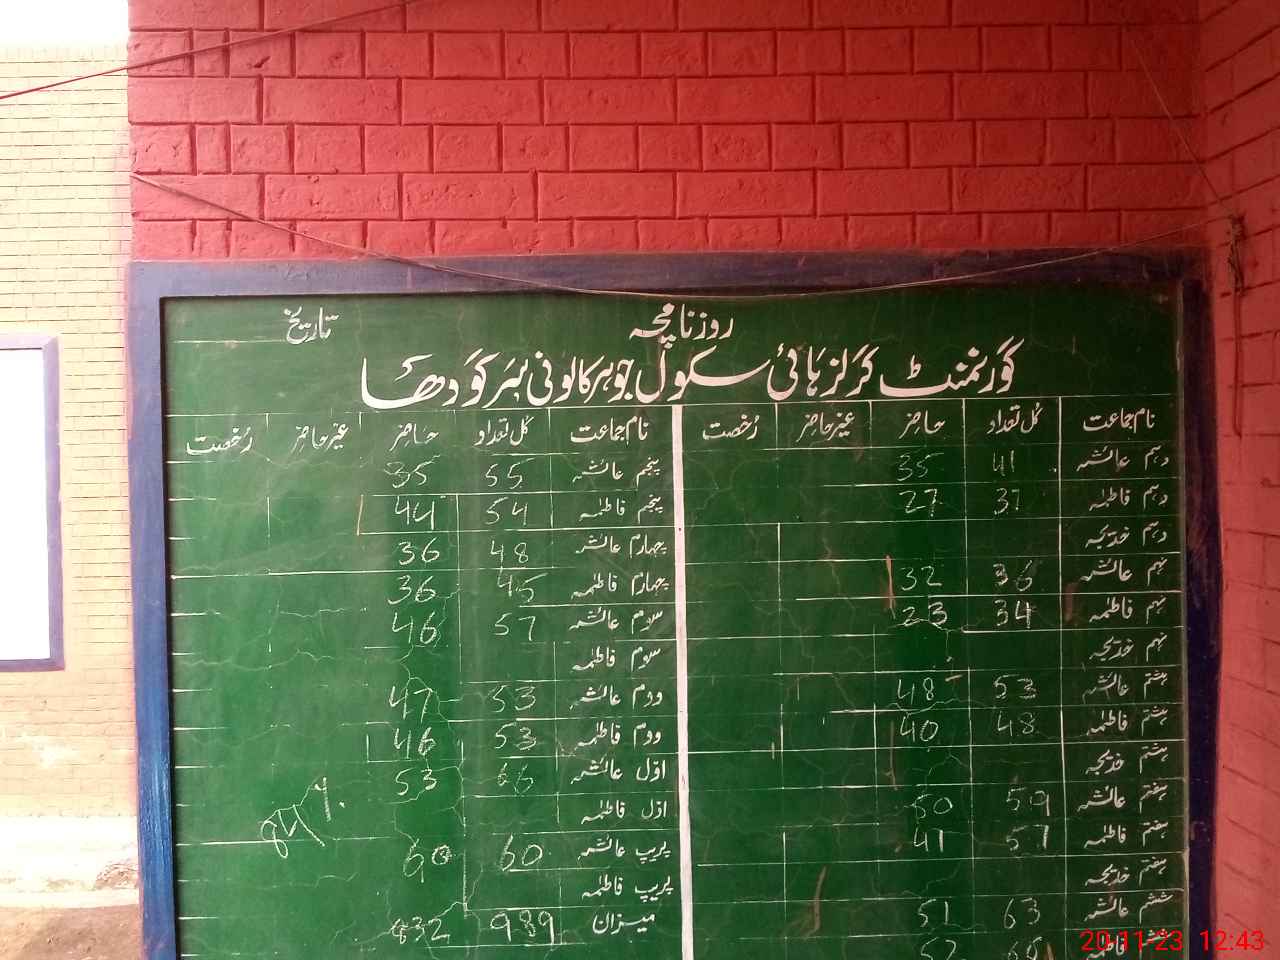 روزنامچہ تاریخ
گورنمنٹ گرلز ہائی سکول جوہر کالونی سرگودھا
نام جماعت کل تعداد حاضر غیر حاضر رخصت نام جماعت کل تعداد حاضر غیر حاضر رخصت
دہم عائشہ 41 35 پنجم عائشہ 55 35
دہم فاطمہ 37 27 پنجم فاطمہ 54 44
دہم خدیجہ چہارم عائشہ 48 36
نہم عائشہ 36 32 چہارم فاطمہ 45 36
نہم فاطمہ 34 23 سوم عائشہ 57 46
نہم خدیجہ سوم فاطمہ
ہشتم عائشہ 53 48 دوم عائشہ 53 47
ہشتم فاطمہ 48 40 دوم فاطمہ 53 46
ہشتم خدیجہ اول عائشہ 66 53
ہفتم عائشہ 59 50 اول فاطمہ
ہفتم فاطمہ 57 41 پریپ عائشہ 60 60
ہفتم خدیجہ پریپ فاطمہ
ششم عائشہ 63 51 میزان 989 832
ششم فاطمہ 52
20-11-23 12:43